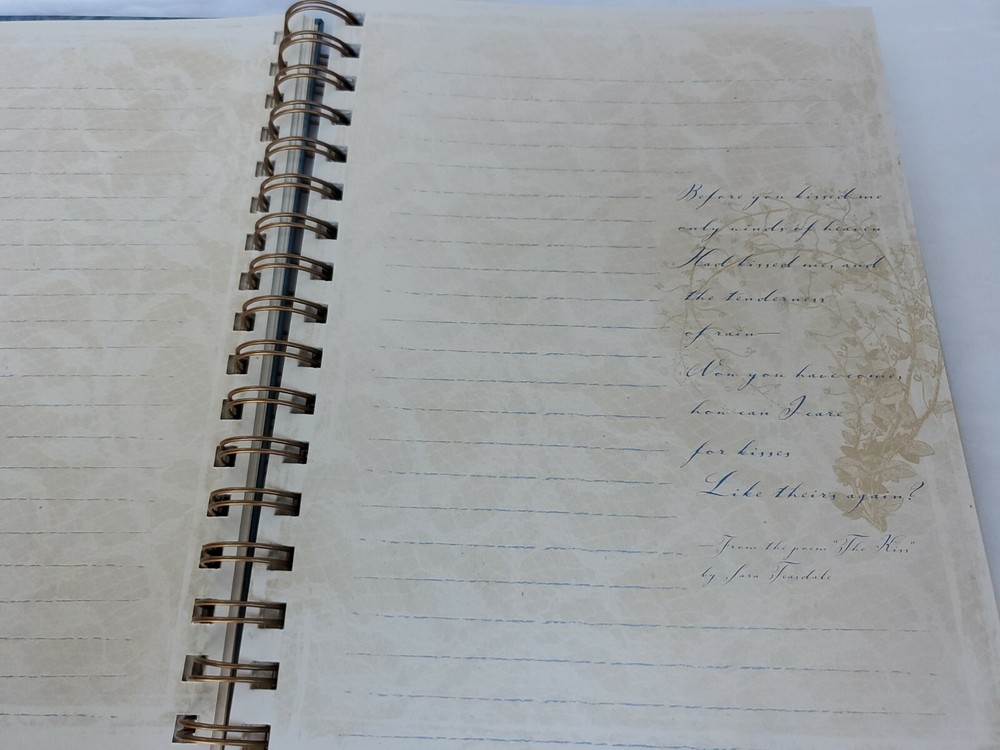 Before you kissed me
only winds of heaven
Had kissed me, and
the tenderness
of rain—
Now you have come,
how can I care
for kisses
Like theirs again?
—From the poem "The Kiss"
by Sara Teasdale